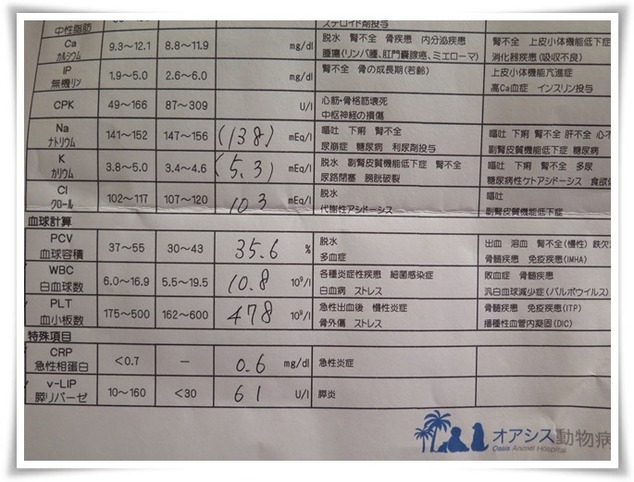 中性脂肪 ステロイド剤投与
Ca 9.3~12.1 8.8~11.9 mg/dl 脱水 腎不全 骨疾患 内分泌疾患 腎不全 上皮小体機能低下症
カルシウム 腫瘍(リンパ腫、肛門嚢腺癌、ミエローマ) 消化器疾患(吸収不良)
IP 1.9~5.0 2.6~6.0 mg/dl 腎不全 骨の成長期(若齢) 上皮小体機能亢進症
無機リン 高Ca血症 インスリン投与
CPK 49~166 87~309 U/l 心筋・骨格筋壊死
中枢神経の損傷
Na 141~152 147~156 (138) mEq/l 嘔吐 下痢 腎不全 嘔吐 下痢 腎不全 肝不全
ナトリウム 尿崩症 糖尿病 利尿剤投与 副腎皮質機能低下症 糖尿病
K 3.8~5.0 3.4~4.6 (5.3) mEq/l 脱水 副腎皮質機能低下症 腎不全 嘔吐 下痢 腎不全 多尿
カリウム 尿路閉塞 膀胱破裂 糖尿病性ケトアシドーシス
Cl 102~117 107~120 103 mEq/l 脱水 嘔吐
クロール 代謝性アシドーシス 副腎皮質機能低下症
血球計算
PCV 37~55 30~43 35.6 % 脱水 出血 溶血 腎不全(慢性)
血球容積 多血症 骨髄疾患 免疫疾患(IMHA)
WBC 6.0~16.9 5.5~19.5 10.8 10⁹/l 各種炎症性疾患 細菌感染症 敗血症 骨髄疾患
白血球数 白血病 ストレス 汎白血球減少症(パルボウイルス)
PLT 175~500 162~600 478 10⁹/l 急性出血後 慢性炎症 骨髄疾患 免疫疾患(ITP)
血小板数 骨外傷 ストレス 播種性血管内凝固(DIC)
特殊項目
CRP <0.7 — 0.6 mg/dl 急性炎症
急性相蛋白
v-LIP 10~160 <30 61 U/l 膵炎
膵リパーゼ
オアシス動物病
Oasis Animal Hospital